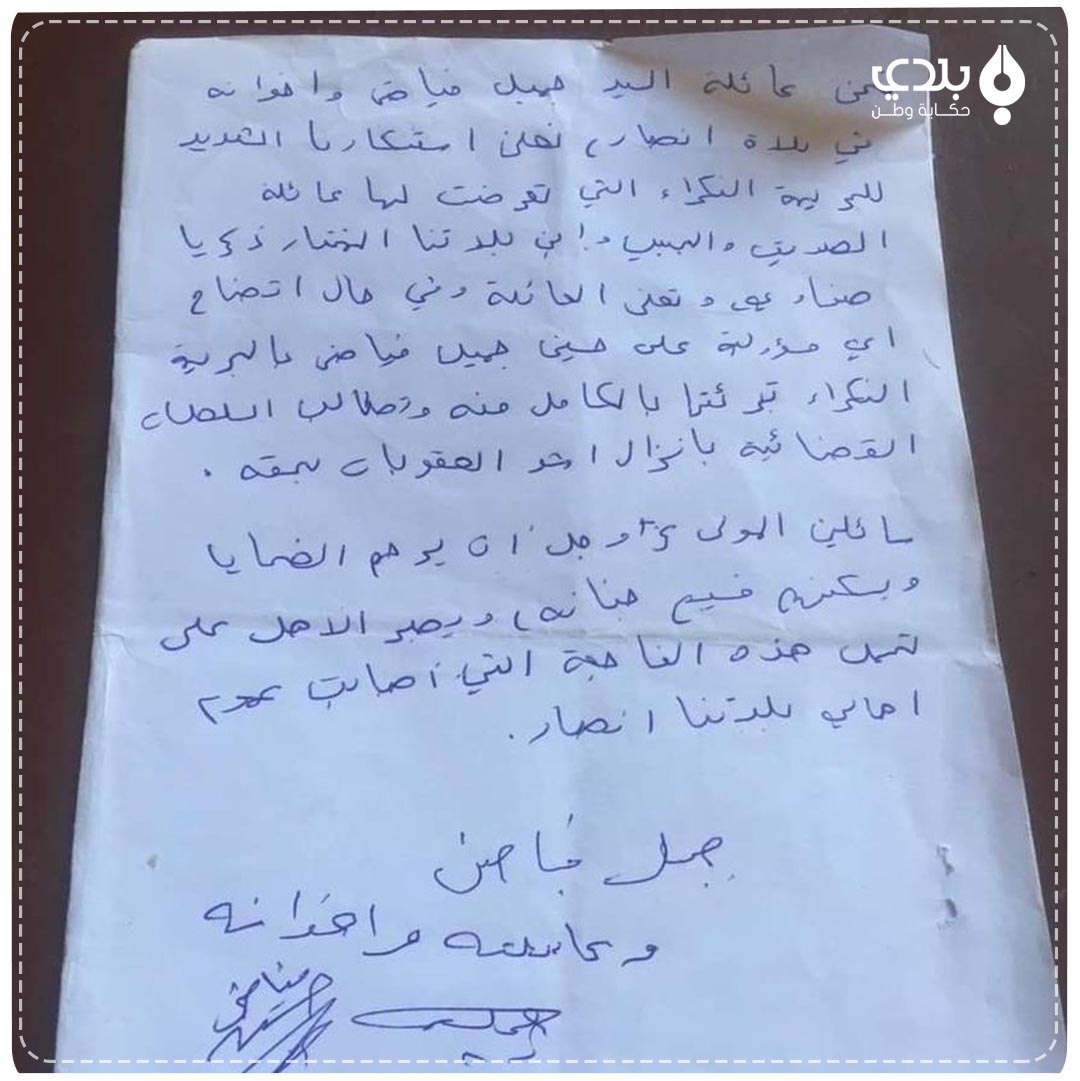 بلدي
حكاية وطن
نحن عائلة السيد جميل فياض واخوانه
في بلدة انصار، نعلن استنكارنا الشديد
للجريمة النكراء التي تعرضت لها عائلة
الصديق والحبيب وابن بلدتنا المختار زكريا
صفاوي وتعلن العائلة وفي حال اتضاح
اي مسؤولية على حسين جميل فياض بالجريمة
النكراء تبرئتها بالكامل منه وتطالب السلطات
القضائية بانزال اشد العقوبات بحقه .
سائلين المولى عز وجل أن يرحم الضحايا
ويسكنهم فسيح جنانه، ويصبر الاهل على
تحمل هذه الفاجعة التي أصابت عموم
اهالي بلدتنا انصار.
جميل فياض
وعائلته واخوانه
فياض